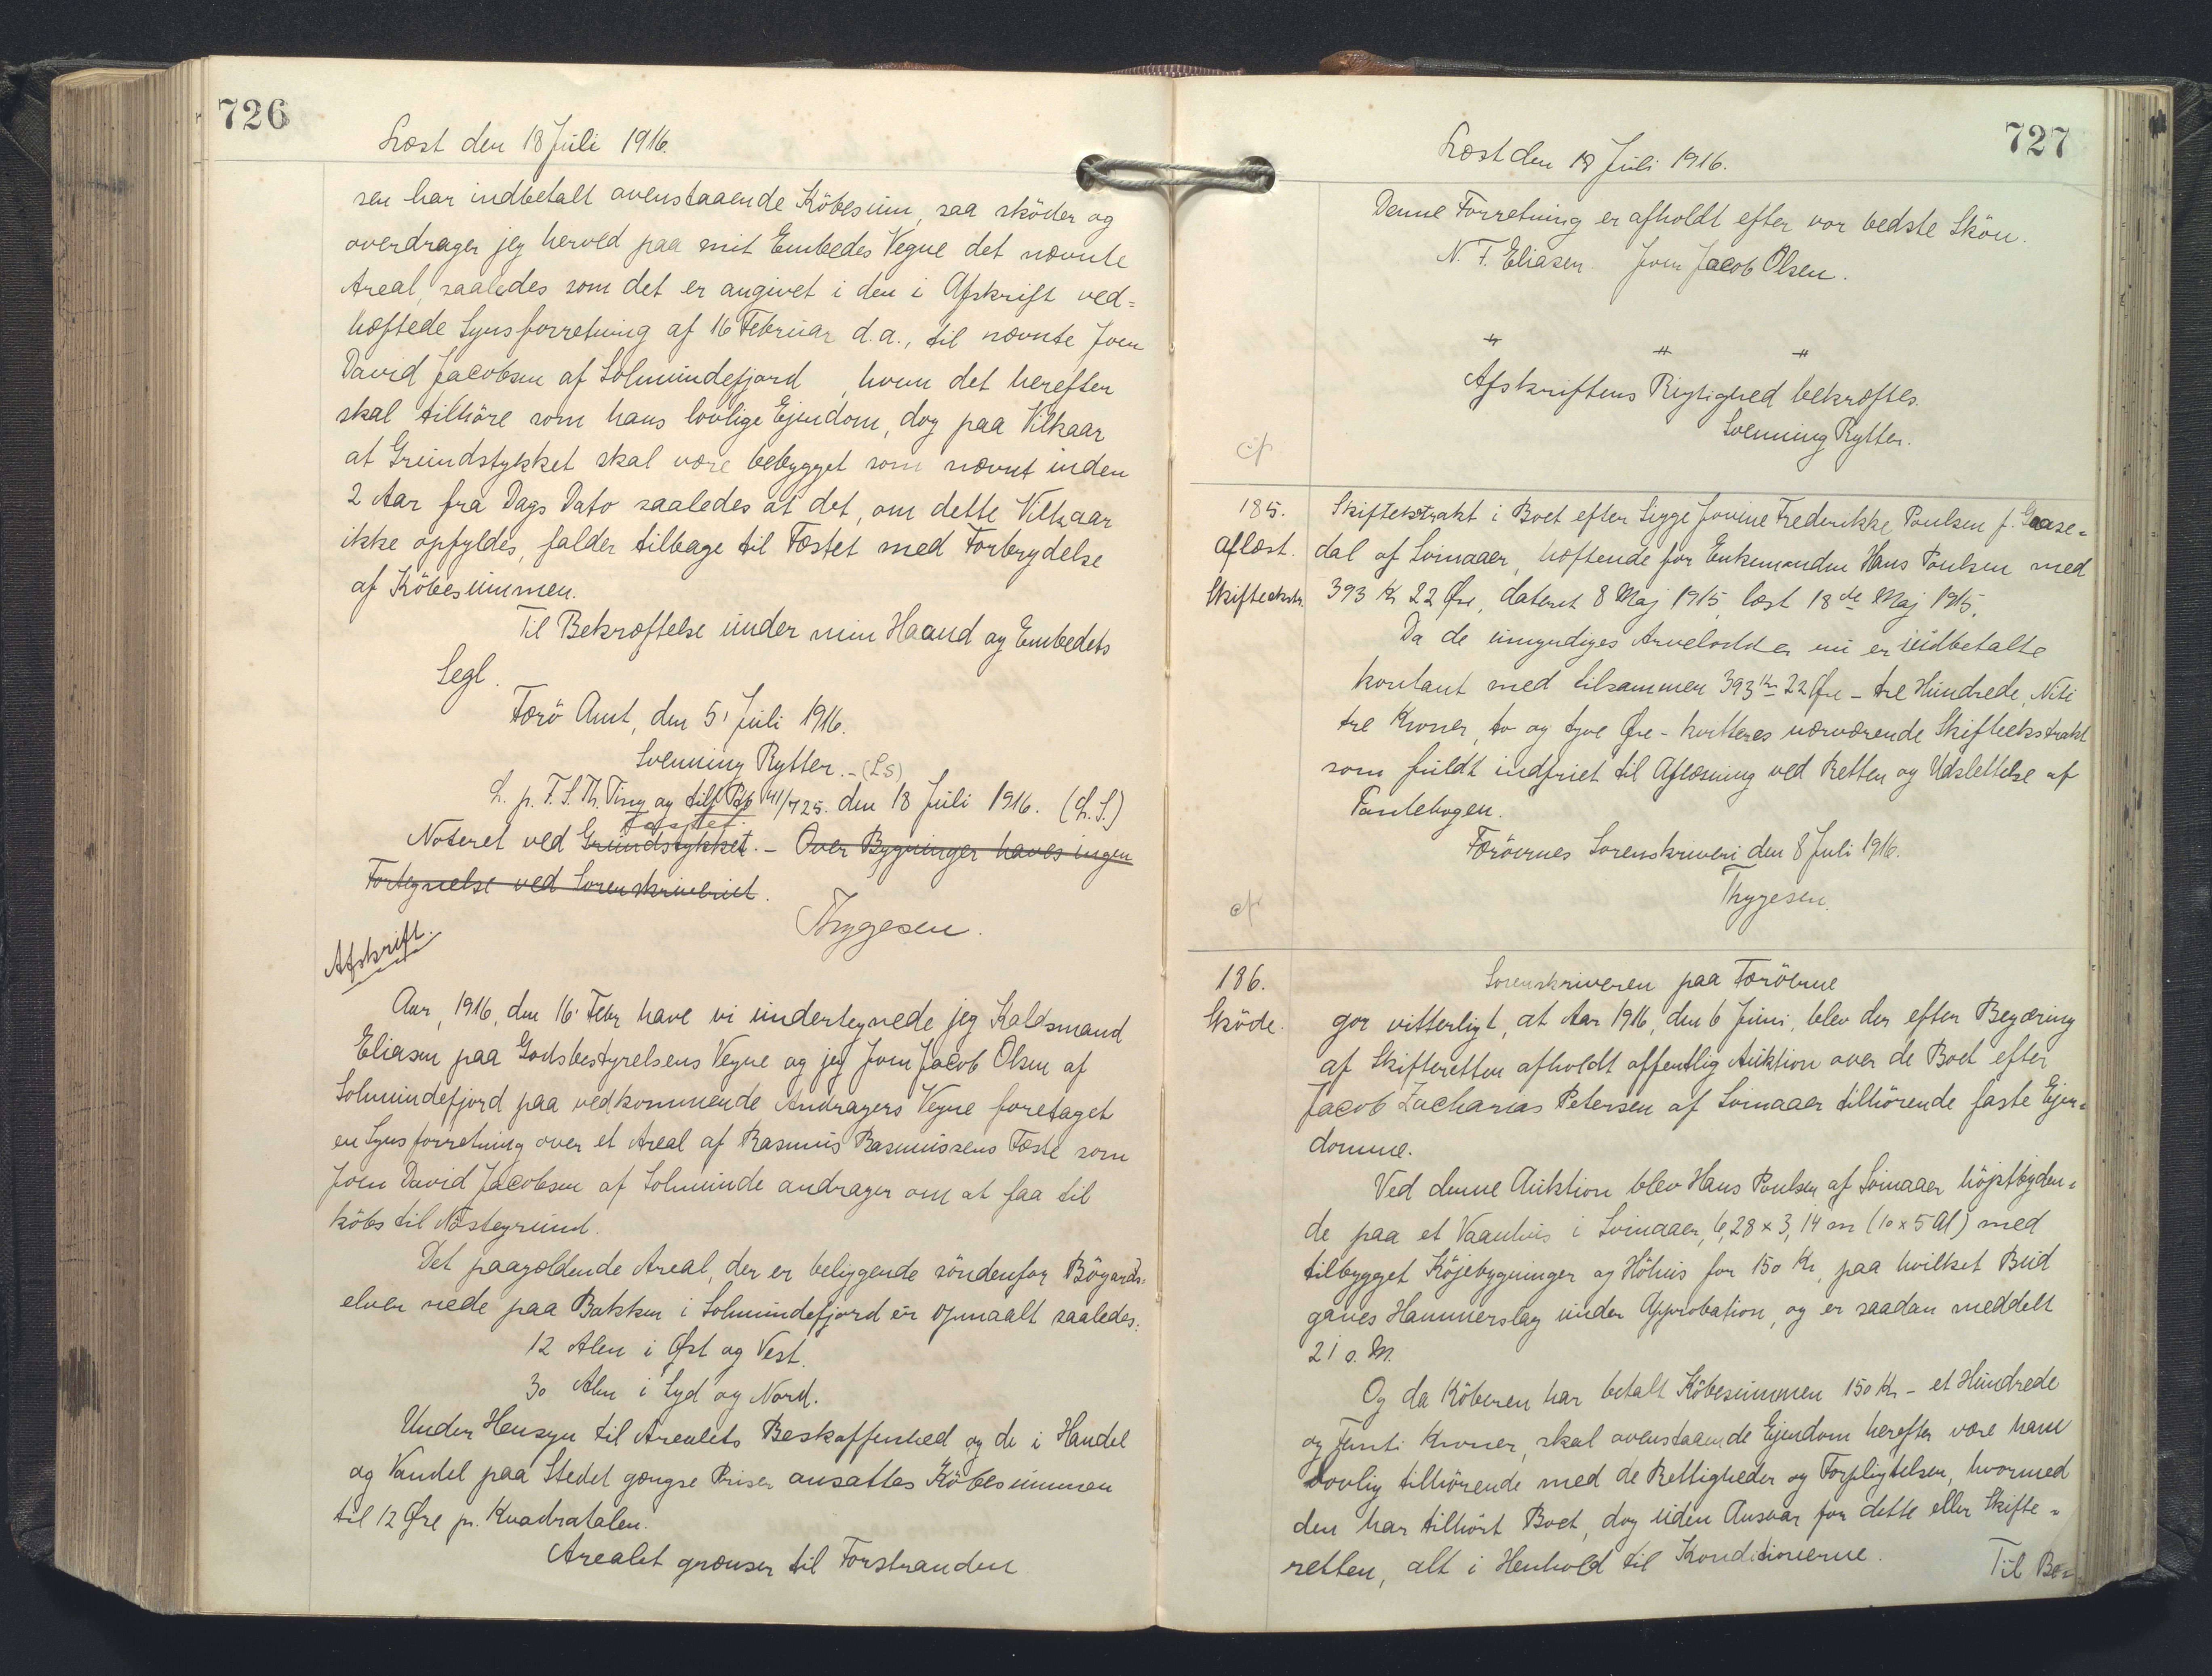 726
Læst den 18 Juli 1916.
sen har indbetalt ovenstaaende Köbesum, saa sköder og
overdrager jeg herved paa mit Embedes Vegne det nævnte
Areal, saaledes som det er angivet i den i Afskrift ved=
hæftede Synsforretning af 16 Februar d.a., til nævnte Joen
David Jacobsen af Solmundefjord, hvem det herefter
skal tilhöre som hans lovlige Ejendom, dog paa Vilkaar
at Grundstykket skal være bebygget som nævnt inden
2 Aar fra Dags Dato saaledes at det, om dette Vilkaar
ikke opfyldes, falder tilbage til Fæstet med Fortrydelse
af Köbesummen.
Til Bekræftelse under min Haand og Embedets
Segl.
Færö Amt, den 5' Juli 1916.
Svenning Rytter. - (LS)
L. p. F. S. Th. Ting og tilf Pb 141/725. den 18 Juli 1916. (L.S.)
Fæstet.
Noteret ved Grundstykket. - Over Bygninger haves ingen
Fortegnelse ved Sorenskriveriet.
Thygesen.
Afskrift.
Aar, 1916, den 16' Febr have vi undertegnede jeg Kaldsmand
Eliasen paa Godsbestyrelsens Vegne og jeg Joen Jacob Olsen af
Solmundefjord paa vedkommende Andragers Vegne foretaget
en Synsforretning over et Areal af Rasmus Rasmussens Fæste som
Joen David Jacobsen af Solmunde andrager om at faa til
köbs til Nöstegrund.
Det paagældende Areal, der er beliggende söndenfor Bögards=
elven nede paa Bakken i Solmundefjord er opmaalt saaledes:
12 Alen i Øst og Vest.
30 Alen i Syd og Nord.
Under Hensyn til Arealets Beskaffenhed og de i Handel
og Vandel paa Stedet gængse Priser ansattes Köbesummen
til 12 Øre pr. Kvadratalen.
Arealet grænser til Forstranden
727
Læst den 18 Juli 1916.
Denne Forretning er afholdt efter vor bedste Skön.
N. F. Eliasen. Joen Jacob Olsen.
Afskriftens Rigtighed bekræftes.
Svenning Rytter.
185.
aflæst.
Skifteekstr.
Skifteekstrakt i Boet efter Sigge Jovine Frederikke Poulsen f. Gaase=
dal af Svinaaer, hæftende for Enkemanden Hans Poulsen med
393 Kr 22 Øre, dateret 8 Maj 1915 læst 18de Maj 1915.
Da de umyndiges Arvelodder nu er indbetalte
kontant med tilsammen 393 Kr 22 Øre - tre Hundrede, Niti
tre Kroner, to og tyve Øre - kvitteres nærværende Skifteekstrakt
som fuldt indfriet til Aflæsning ved Retten og Udslettelse af
Pantebogen.
Færöernes Sorenskriveri den 8 Juli 1916.
Thygesen.
186.
Sköde.
Sorenskriveren paa Færöerne
gör vitterligt, at Aar 1916, den 6 Juni, blev der efter Begæring
af Skifteretten afholdt offentlig Auktion over de Boet efter
Jacob Zacharias Petersen af Svinaaer tilhörende faste Ejen=
domme.
Ved denne Auktion blev Hans Poulsen af Svinaaer höjstbyden=
de paa et Vaanhus i Svinaaer, 6,28 x 3,14 m (10 x 5 Al) med
tilbygget Köjebygninger og Höhus for 150 Kr, paa hvilket Bud
gaves Hammerslag under Approbation, og er saadan meddelt
21 s. M.
Og da Köberen har betalt Köbesummen 150 Kr - et Hundrede
og Femti Kroner, skal ovenstaaende Ejendom herefter være ham
lovlig tilhörende med de Rettigheder og Forpligtelser, hvormed
den har tilhört Boet, dog uden Ansvar for dette eller Skifte=
retten, alt i Henhold til Konditionerne.
Til Be=